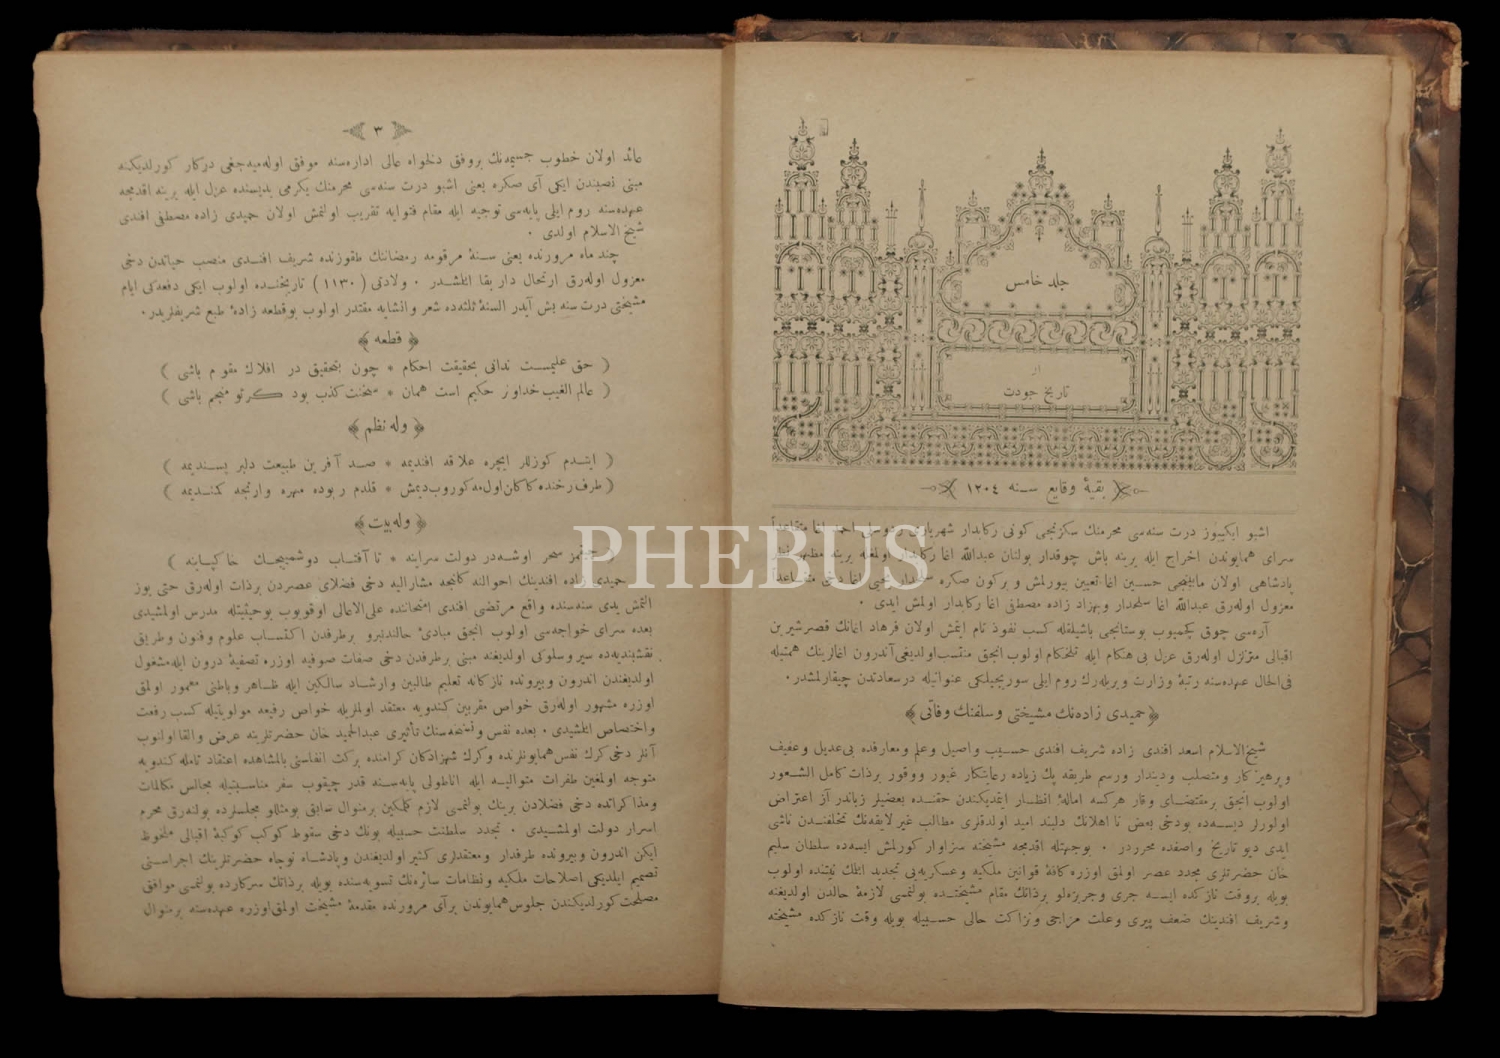 جلد خامس
از
تاریخ جودت
بقیهٔ وقایع سنه ١٢٠٤
اشبو ایکییوز درت سنه‌سی محرمنك سکزنجی کونی رکابدار شهریاری احمد اغا متقاعداً
سرای همایوندن اخراج ایله یرینه باش چوقدار بولنان عبدالله اغا رکابدار اولمغله یرینه مظهر نظر
پادشاهی اولان مابینجی حسین اغا تعیین بیورلمش و برکون صکره سلحدار یحیی اغا دخی متقاعداً
معزول اوله‌رق عبدالله اغا سلحدار وبهزاد زاده مصطفی اغا رکابدار اولمش ایدی .
آره‌سی چوق کچمیوب بوستانجی باشیلقله کسب نفوذ تام ایتمش اولان فرهاد اغانك قصر شیرین
اقبالی متزلزل اوله‌رق عزل بی هنکام ایله تلخکام اولوب انجق منتسب اولدیغی آندرون اغالرینك همتیله
فی‌الحال عهده‌سنه رتبهٔ وزارت ویریله‌رك روم ایلی سوریجیلکی عنوانیله درسعادتدن چیقارلمشدر .
حمیدی زاده‌نك مشیختی و سلفنك وفاتی
شیخ‌الاسلام اسعد افندی زاده شریف افندی حسیب واصیل وعلم ومعارفده بی‌عدیل وعفیف
وپرهیزکار ومتصلب ودیندار ورسم طریقه پك زیاده رعایتکار غیور ووقور برذات کامل الشعور
اولوب انجق برمقتضای وقار هرکسه امالهٔ انظار ایتمدیکندن حقنده بعضیلر زباندراز اعتراض
اولورلر دیسه‌ده بودخی بعض نا اهلانك دلبند امید اولدقلری مطالب غیر لایقه‌نك تخلفندن ناشی
ایدی دیو تاریخ واصفده محرردر . بوجهتله اقدمجه مشیخته سزاوار کورلمش ایسه‌ده سلطان سلیم
خان حضرتلری مجدد عصر اولمق اوزره کافهٔ قوانین ملکیه وعسکریه‌یی تجدید اتمك نیتنده اولوب
بویله بروقت نازکده ایسه جری وجربزه‌لو برذاتك مقام مشیختده بولنمسی لازمهٔ حالدن اولدیغنه
وشریف افندینك ضعف پیری وعلت مزاجی ونزاکت حالی حسبیله بویله وقت نازکده مشیخته
٣
عائد اولان خطوب جسیمه‌نك بروفق دلخواه عالی اداره‌سنه موفق اوله‌میه‌جغی درکار کورلدیکنه
مبنی نصبندن ایکی آی صکره یعنی اشبو درت سنه‌سی محرمنك یکرمی یدیسنده عزل ایله یرینه اقدمجه
عهده‌سنه روم ایلی پایه‌سی توجیه ایله مقام فتوایه تقریب اولنمش اولان حمیدی زاده مصطفی افندی
شیخ الاسلام اولدی .
چند ماه مرورنده یعنی سنهٔ مرقومه رمضاننك طقوزنده شریف افندی منصب حیاتدن دخی
معزول اوله‌رق ارتحال دار بقا ائلشدر . ولادتی (١١٣٠) تاریخنده اولوب ایکی دفعه‌کی ایام
مشیختی درت سنه بش آیدر السنهٔ ثلثه‌ده شعر وانشایه مقتدر اولوب بوقطعه زادهٔ طبع شریفلریدر .
قطعه
( حق علیمست ندانی بحقیقت احکام * چون بتحقیق در افلاك مقوم باشی )
( عالم الغیب خداوند حکیم است همان * سخنت کذب بود کرتو منجم باشی )
وله نظم
( ایتدم کوزللر ایچره علاقه افندیمه * صد آفرین طبیعت دلبر پسندیمه )
( طرف رخنده کاکلن اول‌مه کوروب دیمش * قلدم ربوده مهره وارنجه کمندیمه )
وله بیت
( سحر اوشه‌در دولت سرایه * تا آفتاب دوشمیجك خاکپایه )
حمیدی زاده افندینك احوالنه کلنجه مشارالیه دخی فضلای عصردن برذات اوله‌رق حتی یوز
التمش یدی سنه‌سنده واقع مرتضی افندی امتحاننده علی‌الاعالی اوقویوب بوحیثیتله مدرس اولمشیدی
بعده سرای خواجه‌سی اولوب انجق مبادئ حالندنبرو برطرفدن اکتساب علوم وفنون وطریق
نقشبندیه‌ده سیر وسلوکی اولدیغنه مبنی برطرفدن دخی صفات صوفیه اوزره تصفیهٔ درون ایله مشغول
اولدیغندن اندرون وبیرونده نازکانه تعلیم طالبین وارشاد سالکین ایله ظاهر وباطنی معمور اولمق
اوزره مشهور اوله‌رق خواص مقربین کندویه معتقد اولملریله خواص رفیعه مولویتیله کسب رفعت
واختصاص ائلشیدی . بعده نفس ونسخه‌سنك تأثیری عبدالحمید خان حضرتلرینه عرض والقا اولنوب
آنلر دخی کرك نفس همایونلرنده وکرك شهزادکان کرامنده برکت انفاسنی بالمشاهده اعتقاد تامله کندویه
متوجه اولمغین طفرات متوالیه ایله اناطولی پایه‌سنه قدر چیقوب سفر مناسبتیله مجالس مکالمات
ومذاکراتده دخی فضلادن برینك بولنمسی لازم کلمکین برمنوال سابق بومثللو مجلسلرده بولنه‌رق محرم
اسرار دولت اولمشیدی . تجدد سلطنت حسبیله بونك دخی سقوط کوکب کوکبهٔ اقبالی ملحوظ
ایکن اندرون وبیرونده طرفدار ومعتقدلری کثیر اولدیغندن وپادشاه نوجاه حضرتلرینك اجراسنی
تصمیم ایلدیکی اصلاحات ملکیه ونظامات سائره‌نك تسویه‌سنده بویله برذاتك سرکارده بولنمسی موافق
مصلحت کورلدیکندن جلوس همایوندن برآی مرورنده مقدمهٔ مشیخت اولمق اوزره عهده‌سنه برمنوال
PHEBUS